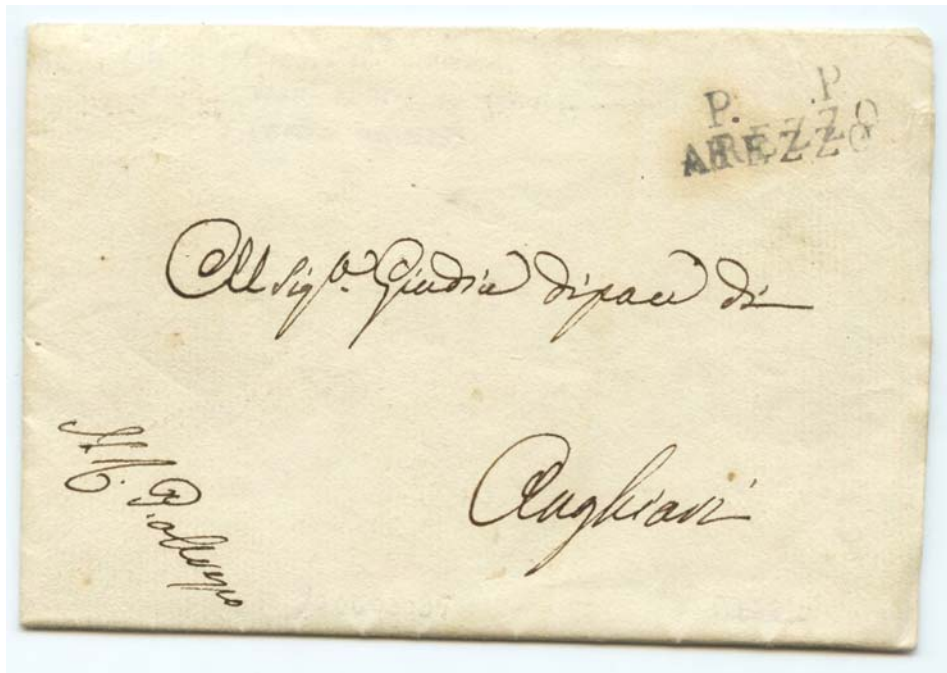 P. P.
AREZZO
AREZZO
Al Sig.r Giudice di pace di
Anghiari